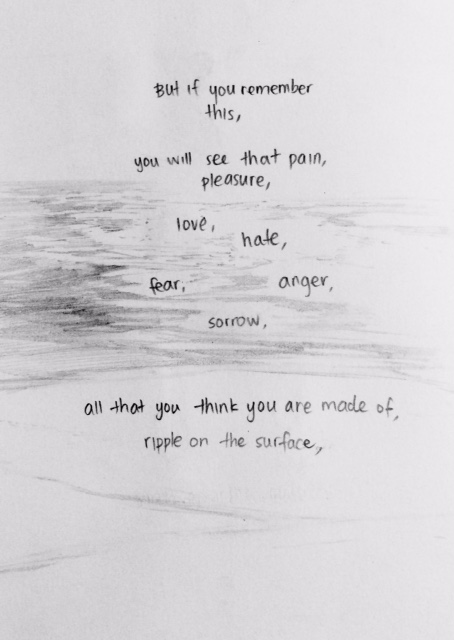 But if you remember
this,
you will see that pain,
pleasure,
love,
hate,
fear,
anger,
sorrow,
all that you think you are made of,
ripple on the surface,